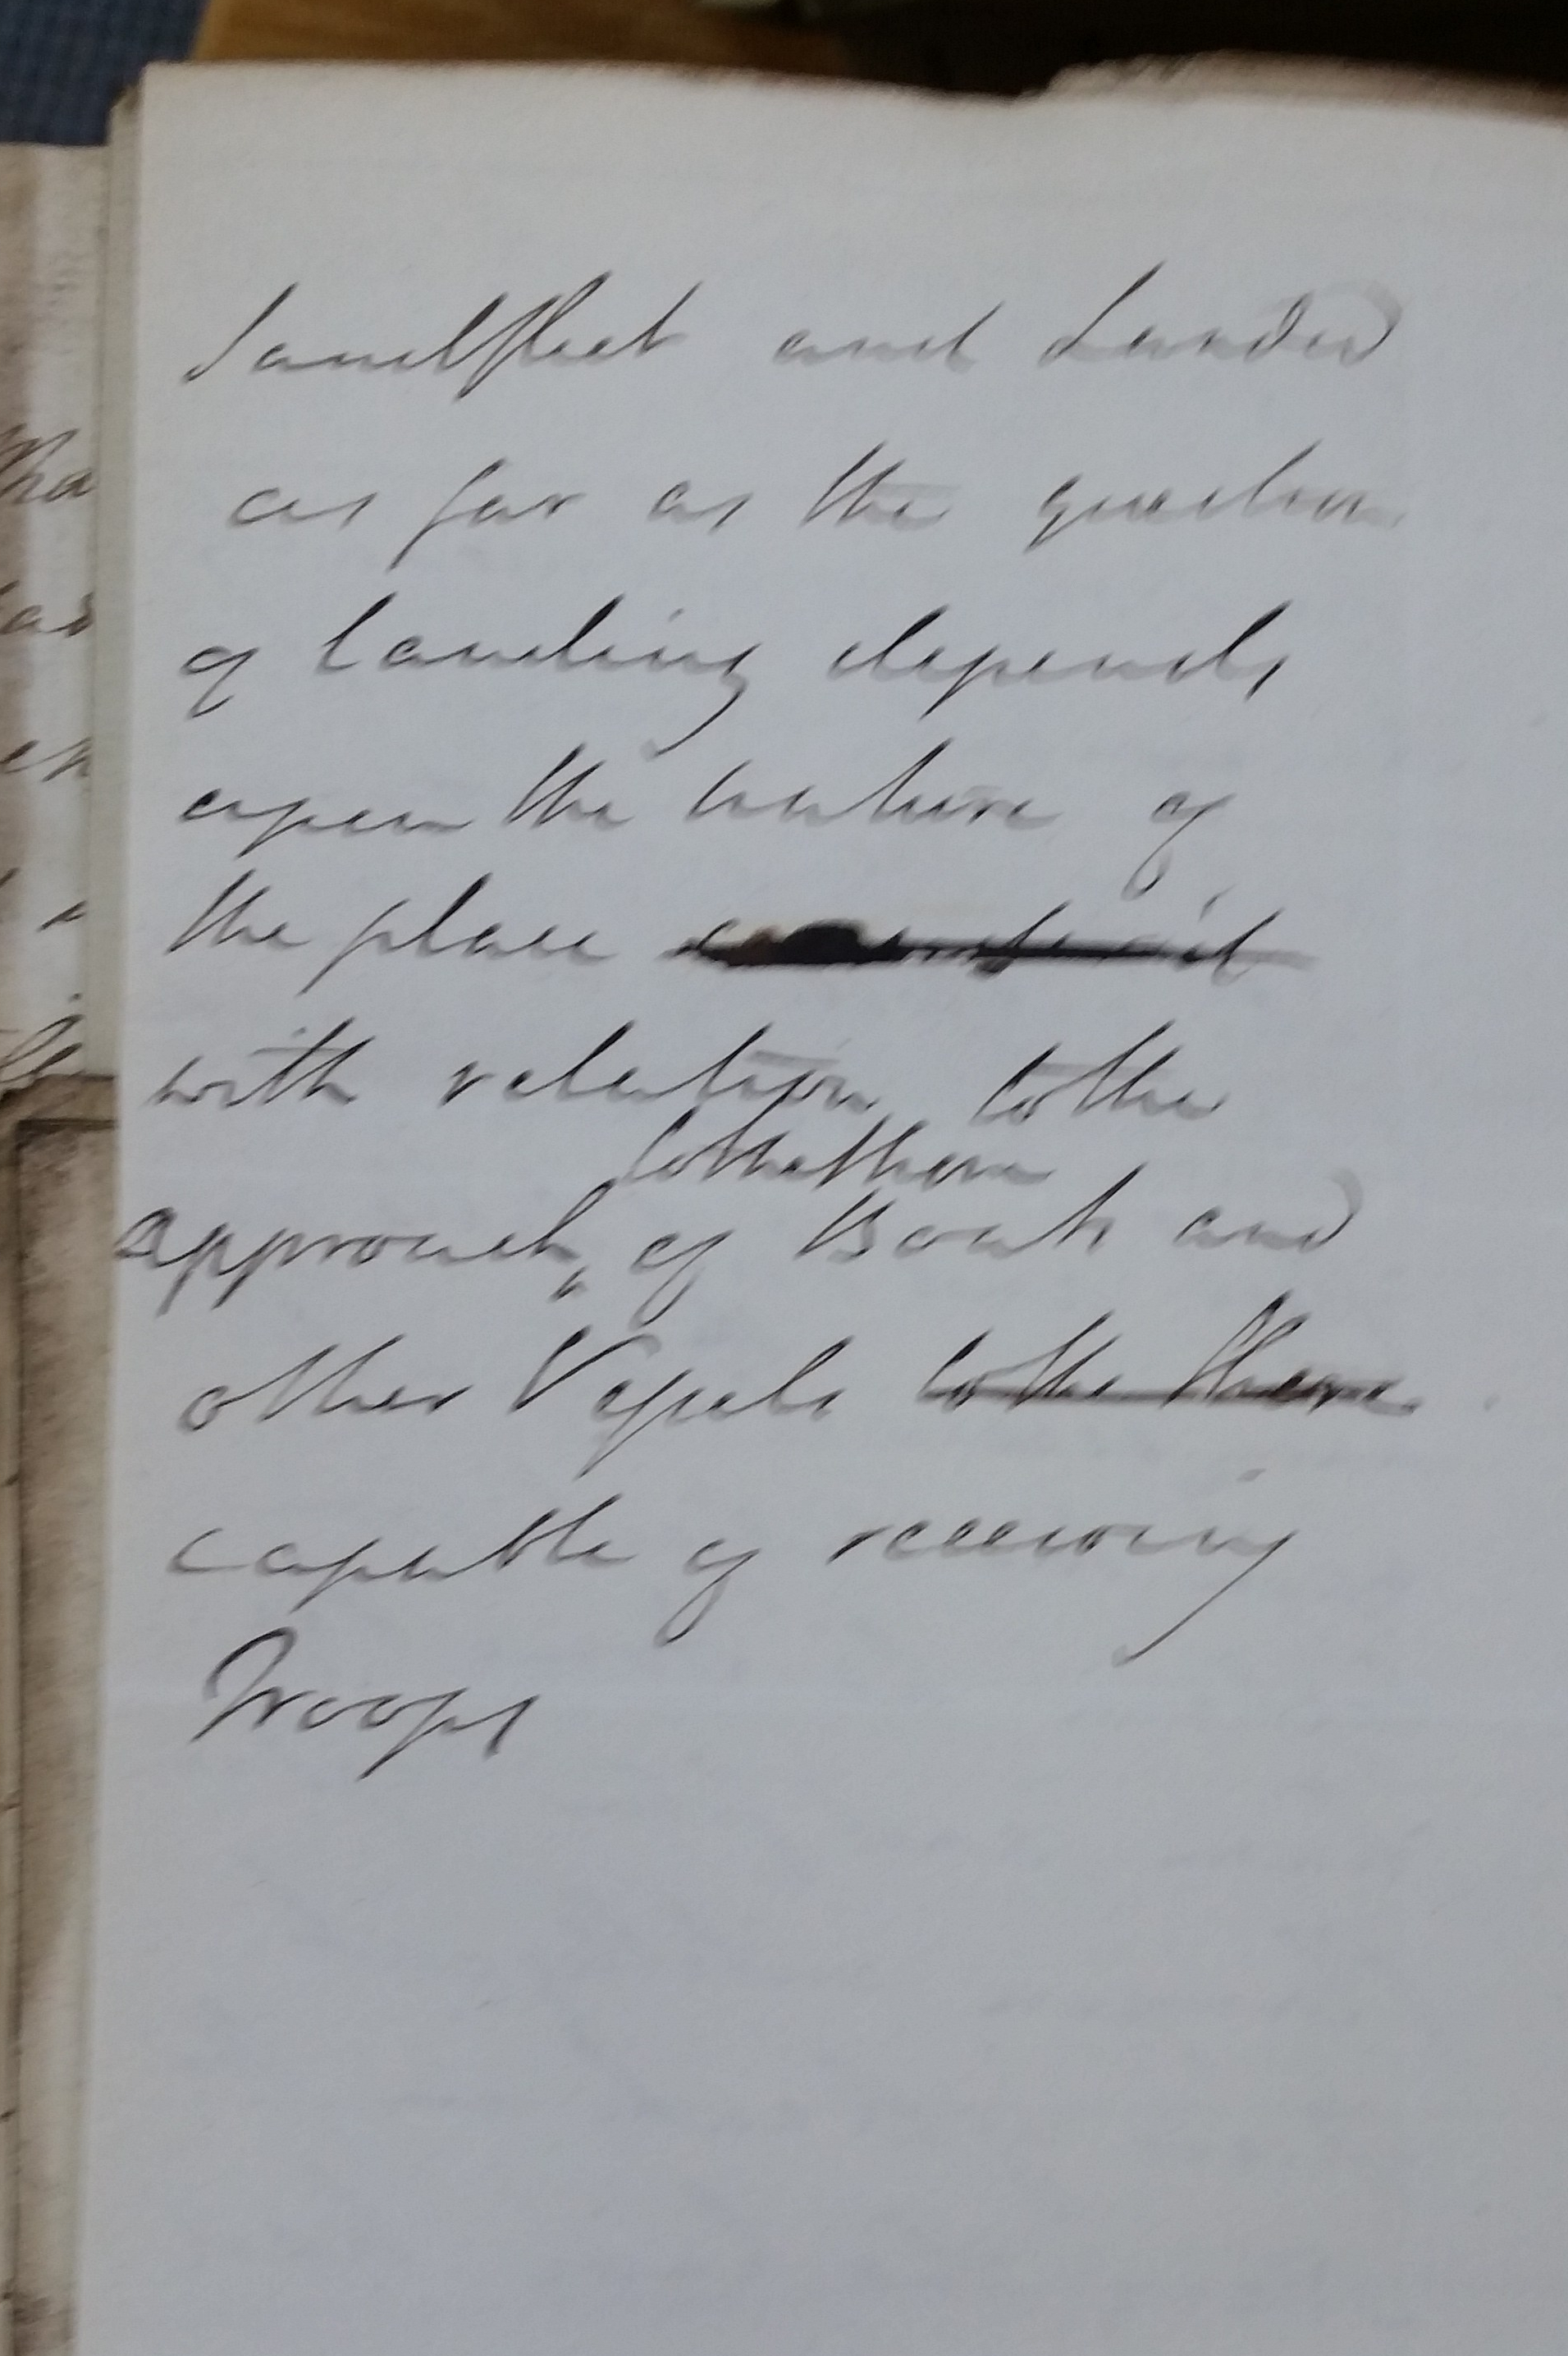 Sandfleet and Landed
as far as the question
of landing depends
upon the nature of
the place
with relation to the
to the shore
approach of Boats and
other Vessels to the shore
capable of receiving
Troops